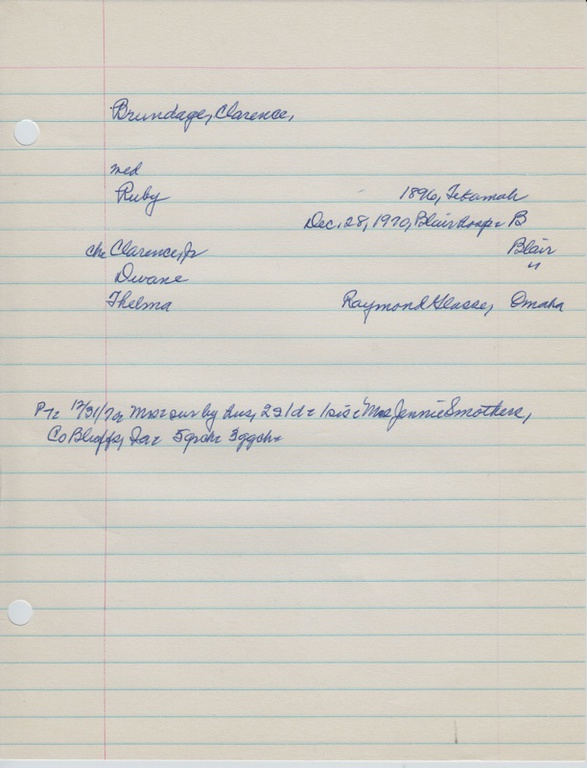 Brundage, Clarence,
med
Ruby 1896, Tekamah
Dec. 28, 1970, Blair hosp. B
ch. Clarence, Jr Blair
Dwane "
Thelma Raymond Omaha
PT: 12/31/70 Mrs. sur by hus, 2s 1d 1 sis: Mrs Jennie Smothers,
Co Bluffs, Ia: 5 grch: 3 ggch.